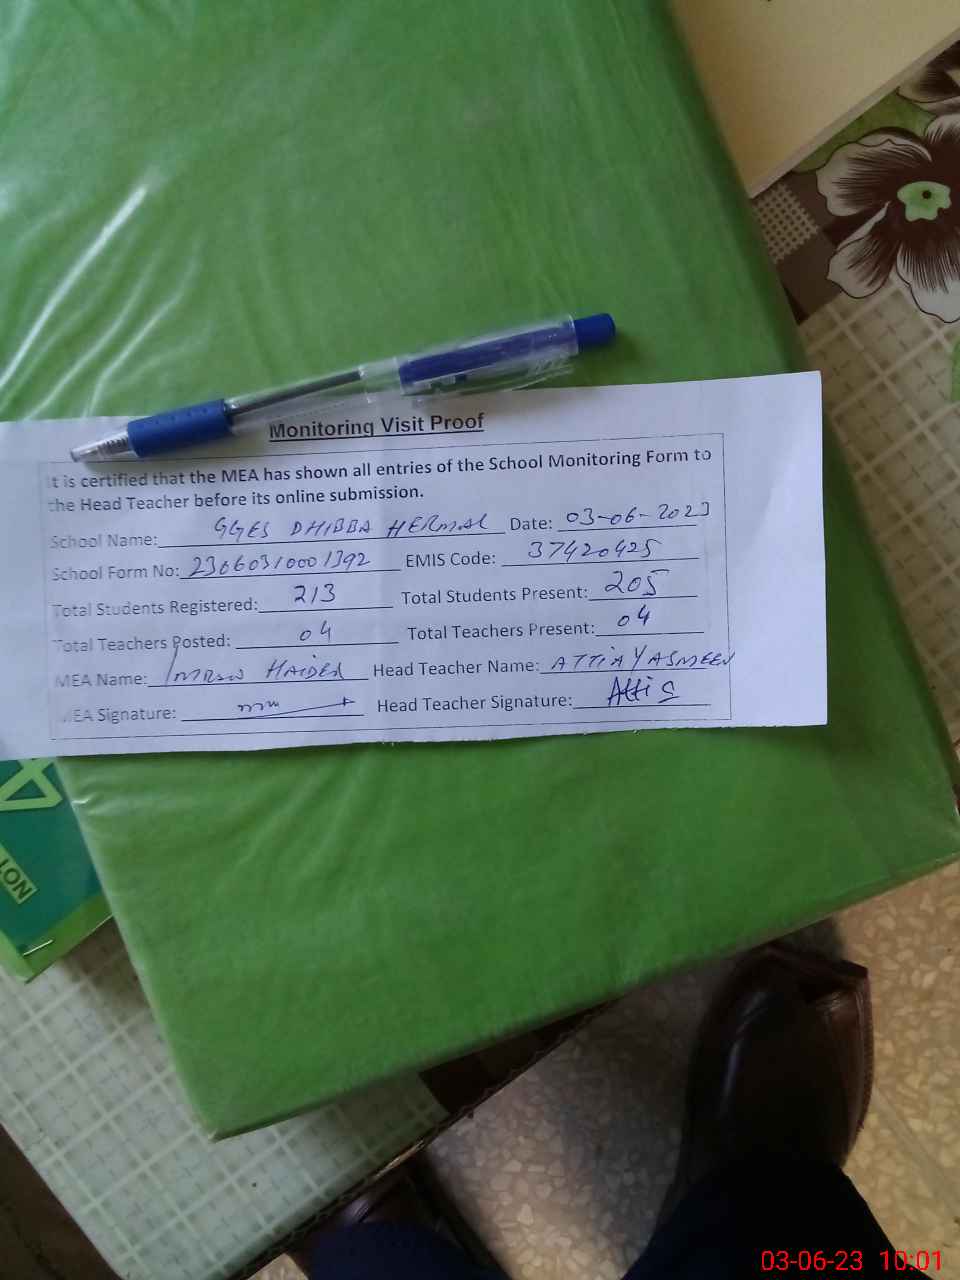 Monitoring Visit Proof
It is certified that the MEA has shown all entries of the School Monitoring Form to
the Head Teacher before its online submission.
School Name: GGES DHIBBA HERMAL Date: 03-06-2023
School Form No: 23060310001392 EMIS Code: 37420425
Total Students Registered: 213 Total Students Present: 205
Total Teachers Posted: 04 Total Teachers Present: 04
MEA Name: IMRAN HAIDER Head Teacher Name: ATTIA YASMEEN
MEA Signature: Head Teacher Signature: Attia
4
NOT
03-06-23 10:01